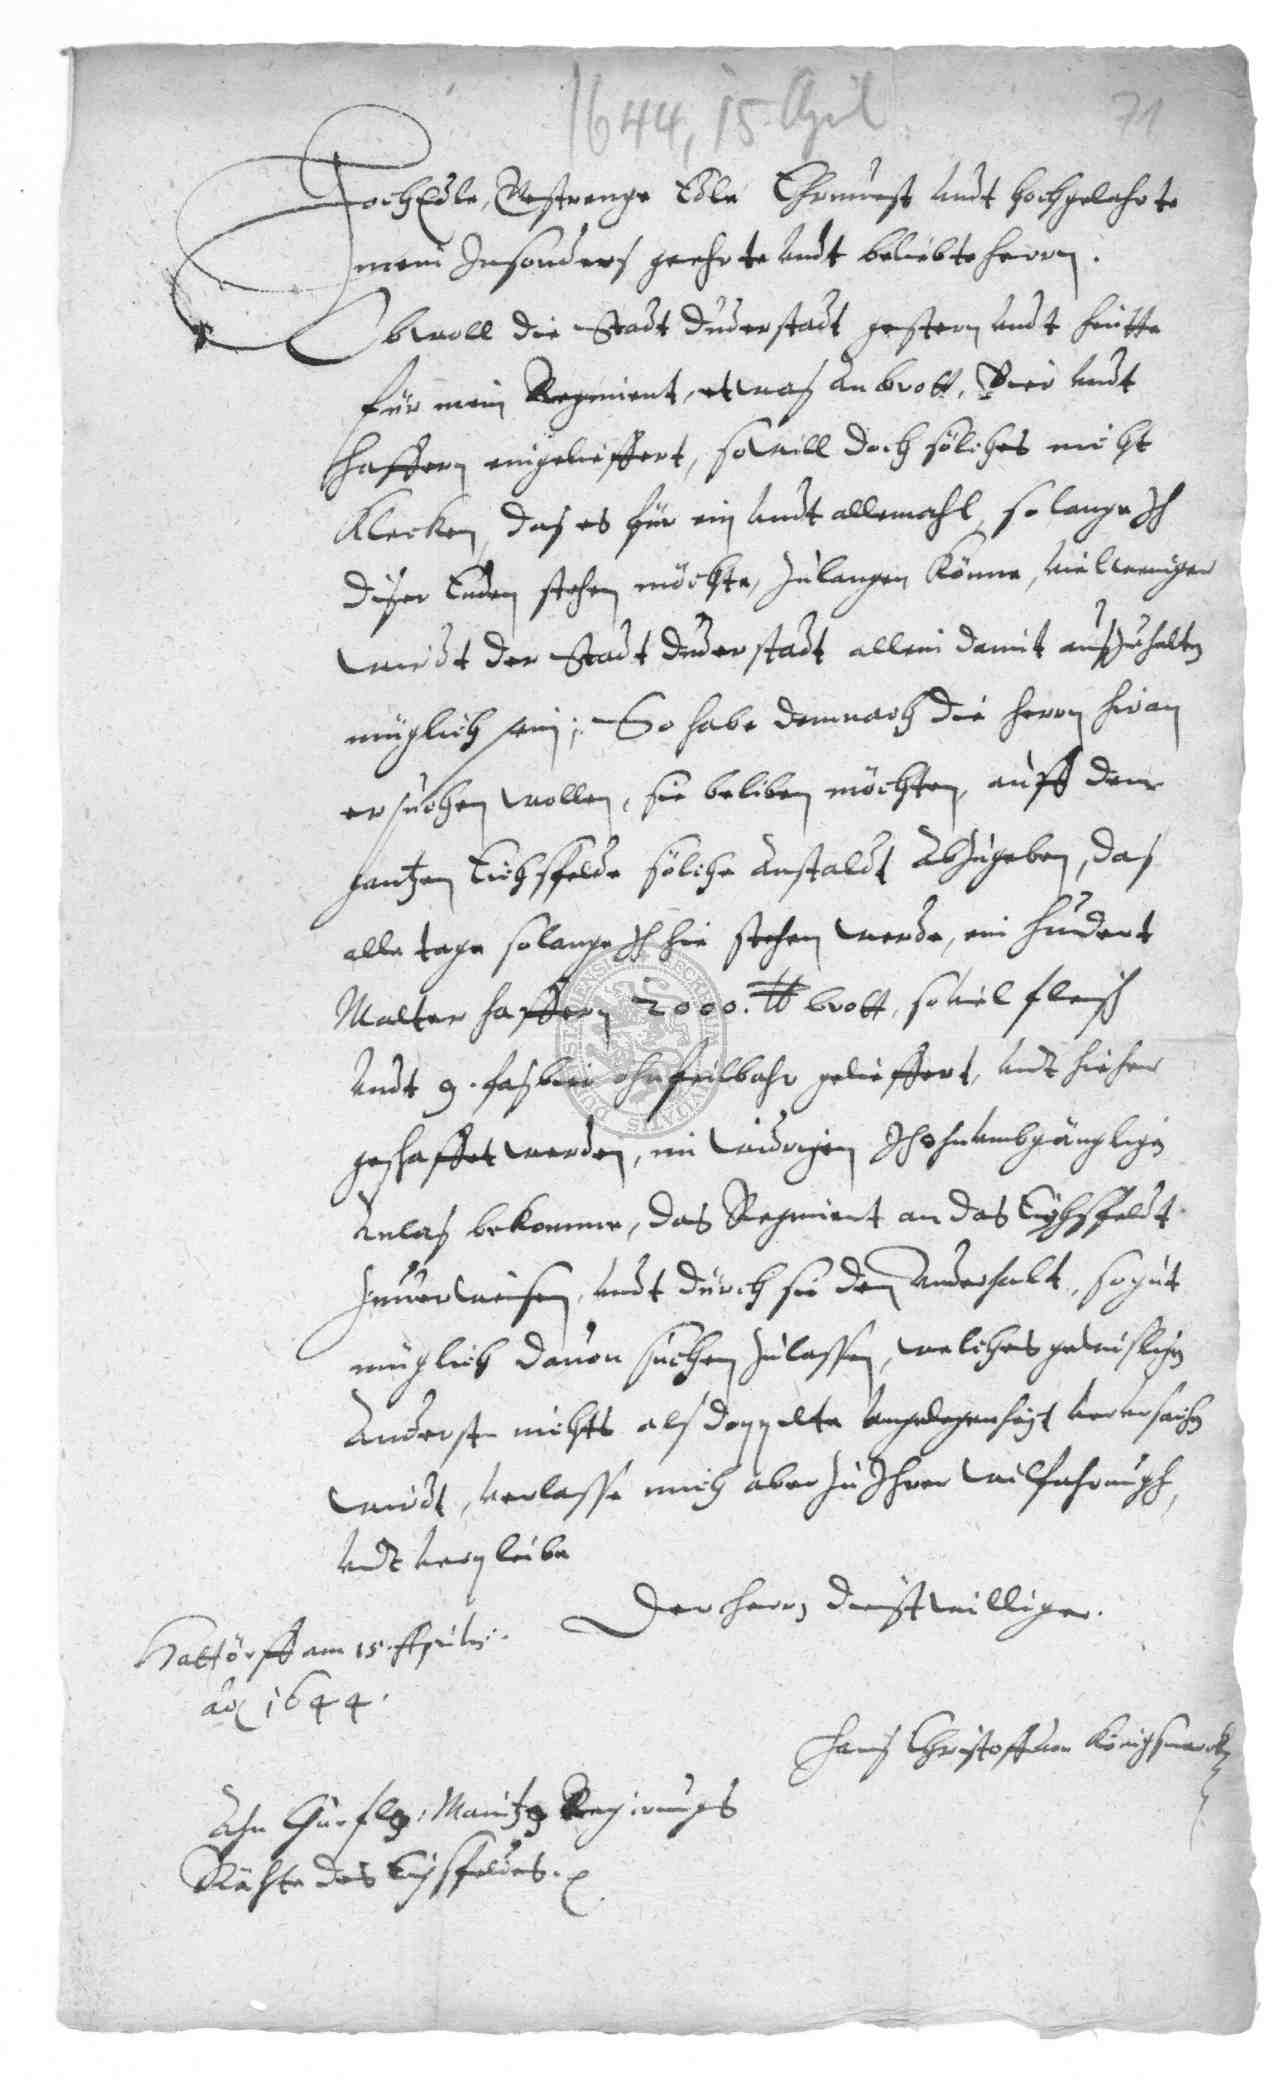 1644, 15. April
71
HochEdle, Gestrenge Edle Ehrnuest undt hochgelahrte
mein Insonders geehrte undt beliebte herrn.
Obwoll die Stadt Duderstadt gestern undt heutte
für mein Regiment, etwas an brott, Bier undt
haffern eingelieffert, so will doch sölches nicht
Klecken, das es für ein undt allemahl, so lange Ich
diser Enden stehen möchte, zulangen könne, viel weniger
wirdt der Stadt Duderstadt allein damit auszuhalten
müglich sein; So habe demnach die herrn hiran
ersuchen wollen, sie beliben möchten, auff dem
gantzen Eichsfelde sölche anstaldt abzugeben, das
alle tage solange Ich hie stehen werde, ein hundert
Malter haffern 2000. ℔ brott, so viel fleisch
undt 9. fas bier ohnfeilbahr gelieffert, undt hieher
geschaffet werden, im widrigen Ich ohnumbgänglichen
anlas bekomme, das Regiment an das Eychsfeldt
zuuerweisen, undt durch sie den underhalt, so gut
müglich dauon suchen zulassen, welches gewislichen
anderst nichts als doppelte ungelegenheyt verursachen
wirdt, verlasse mich aber zu Ihrer wilfahrungh,
undt verpleibe
Der herrn dienstwilliger.
Hattorff am 15. Aprilis.
ao 1644.
Hans Christoff von Königsmarck
Ahn Churfl: Maintz: Regirungs
Rähte des Eichsfeldes.